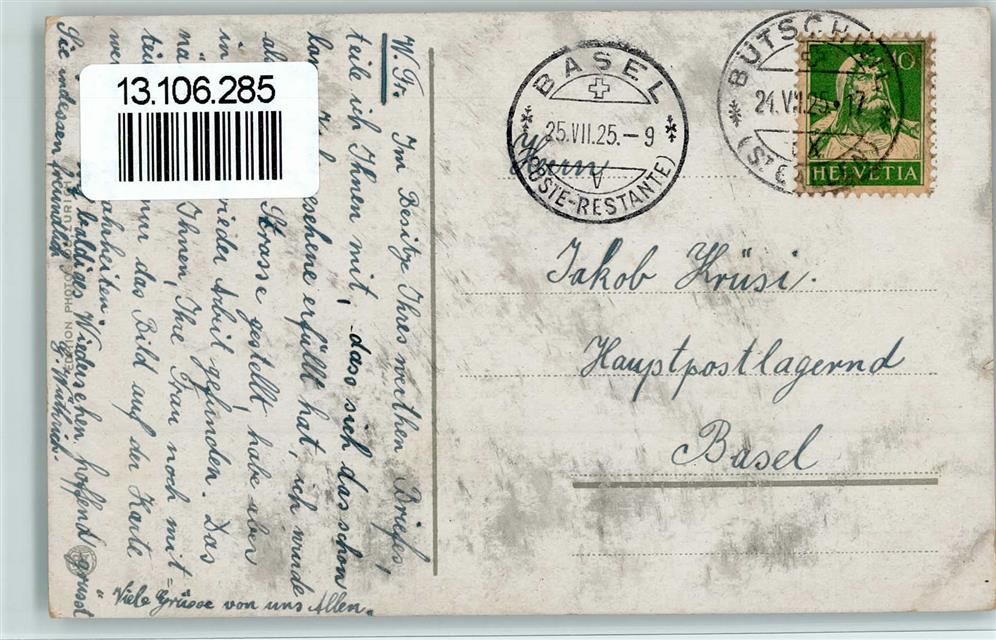 13.106.285
W. Fr. Im Besitze Ihres werthen Briefes,
teile ich Ihnen mit, dass sich das schon
gesehene erfüllt hat, ich wurde
Strasse gestellt, habe aber
wieder Arbeit gefunden. Das
Ihnen, Ihre Frau noch mit=
nur das Bild auf der Karte
ahrheiten.
baldiges Wiedersehen hoffend grüsst
Sie indessen freundlich
"Viele Grüsse von uns Allen."
BASEL
25.VII.25.-9
A
(POSTE-RESTANTE)
BÜTSCHWIL
24.VII.25.
(ST GALLEN)
10
HELVETIA
Herrn
Jakob Krüsi.
Hauptpostlagernd
Basel